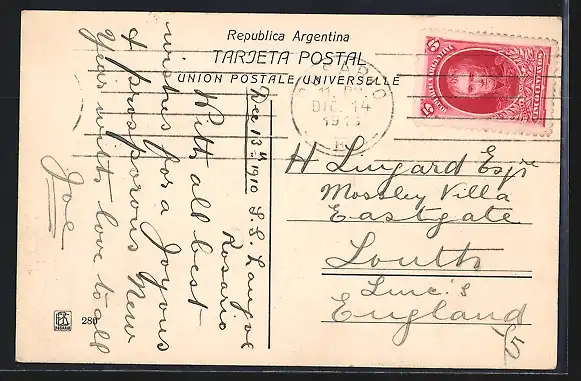 Republica Argentina
TARJETA POSTAL
UNION POSTALE UNIVERSELLE
DIC. 14
5
5
Dec 13th 1910 S.S.
Rosario
With all best
wishes for a Joyous
& prosporous New
Year with love to all
Joe
H Lingard Esqre
Mossley Villa
Eastgate
Louth
Linc's
England
ROSARIO
280